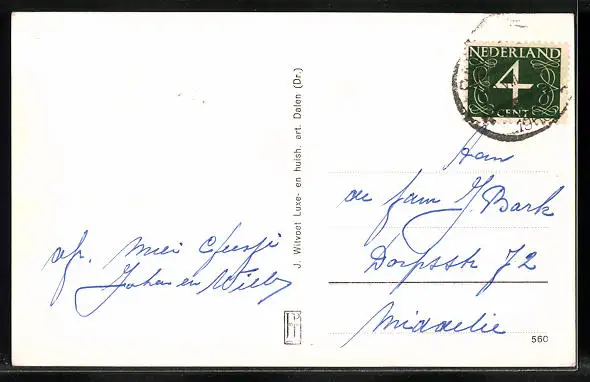 NEDERLAND
4
CENT
Aan
de fam J. Bark
Dorpsstr 72
Middelie
afz. Mien
Johan en Willy
J. Witvoet Luxe- en huish. art. Dalen (Dr.)
560